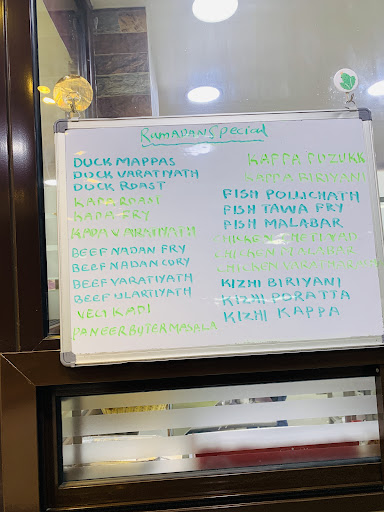 RAMADAN SPECIAL
DUCK MAPPAS
DUCK VARATIYATH
DUCK ROAST
KADA ROAST
KADA FRY
KADA VARATIYATH
BEEF NADAN FRY
BEEF NADAN CURY
BEEF VARATIYATH
BEEF ULARTIYATH
VEG KADI
PANEER BUTER MASALA
KAPPA PUZUKK
KAPPA BIRIYANI
FISH POLLICHATH
FISH TAWA FRY
FISH MALABAR
CHICKEN
CHICKEN MALABAR
CHICKEN
KIZHI BIRIYANI
KIZHI PORATTA
KIZHI KAPPA